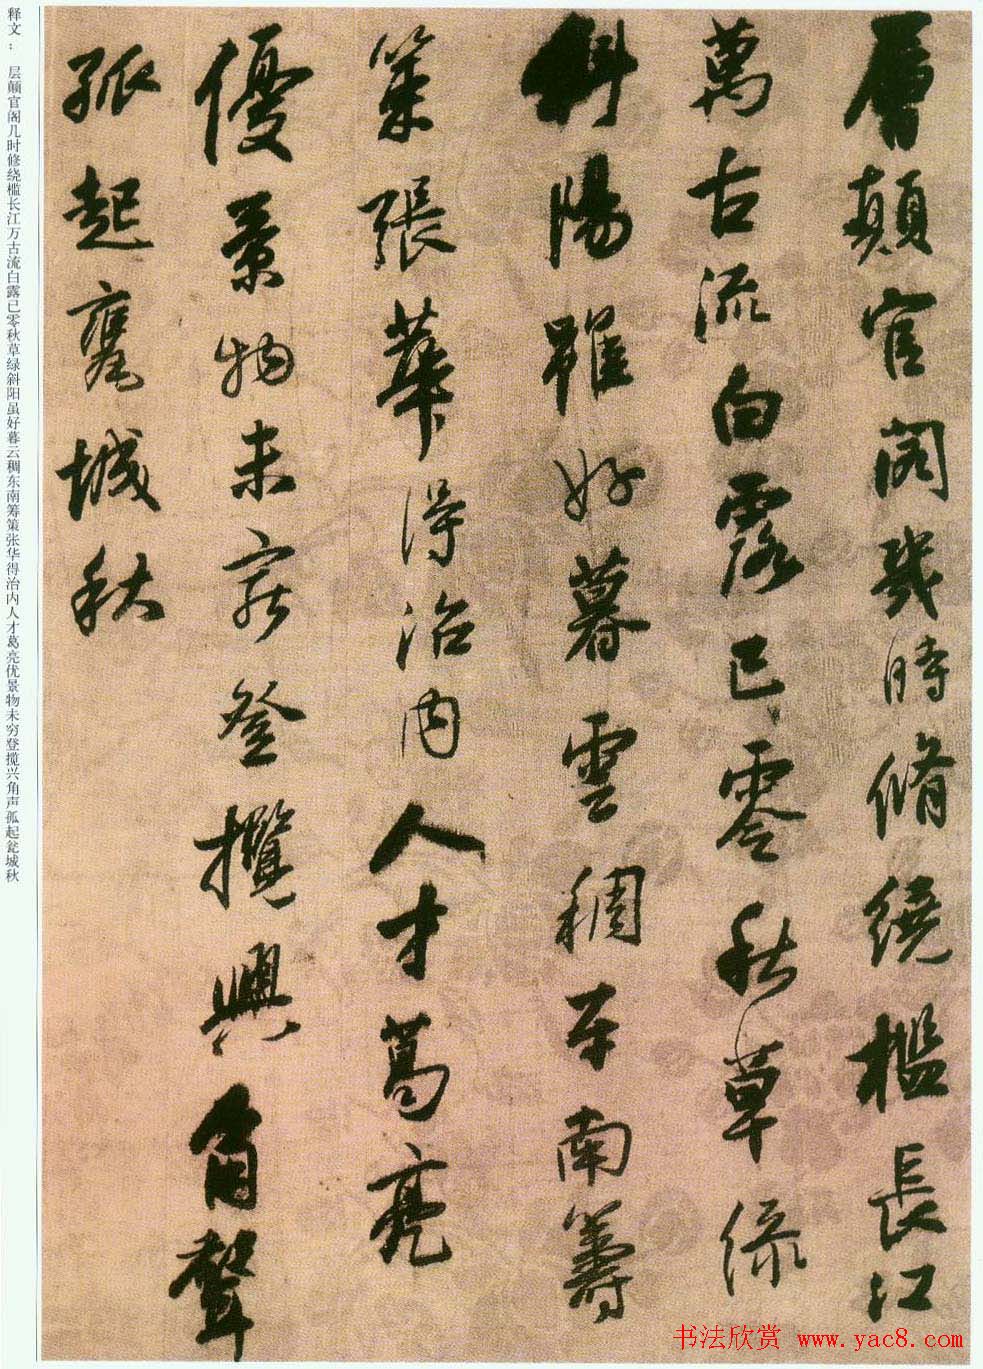 層顛官閣幾時脩繞檻長江
萬古流白露已零秋草綠
斜陽雖好暮雲稠東南籌
策張華得治內人才葛亮
優景物未窮登攬興角聲
孤起甕城秋
释文： 层颠官阁几时修绕槛长江万古流白露已零秋草绿斜阳虽好暮云稠东南筹策张华得治内人才葛亮优景物未穷登揽兴角声孤起瓮城秋
书法欣赏 www.yac8.com